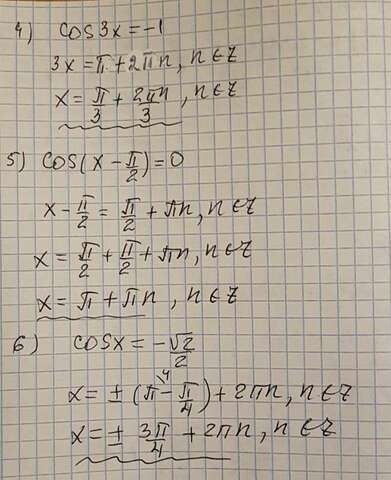 4) cos3x = -1
3x = π + 2πn, n ∈ Z
x = π/3 + 2πn/3, n ∈ Z
5) cos(x - π/2) = 0
x - π/2 = π/2 + πn, n ∈ Z
x = π/2 + π/2 + πn, n ∈ Z
x = π + πn, n ∈ Z
6) cosx = -√2/2
x = ± (π\4 - π/4) + 2πn, n ∈ Z
x = ± 3π/4 + 2πn, n ∈ Z